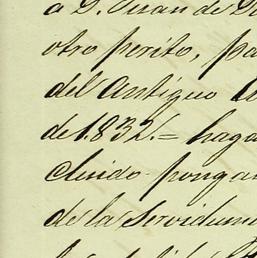 a D. Juan de D
otro perito, pa
del Antiguo
de 1.832.= haga
cluido pongan
de la Servidum